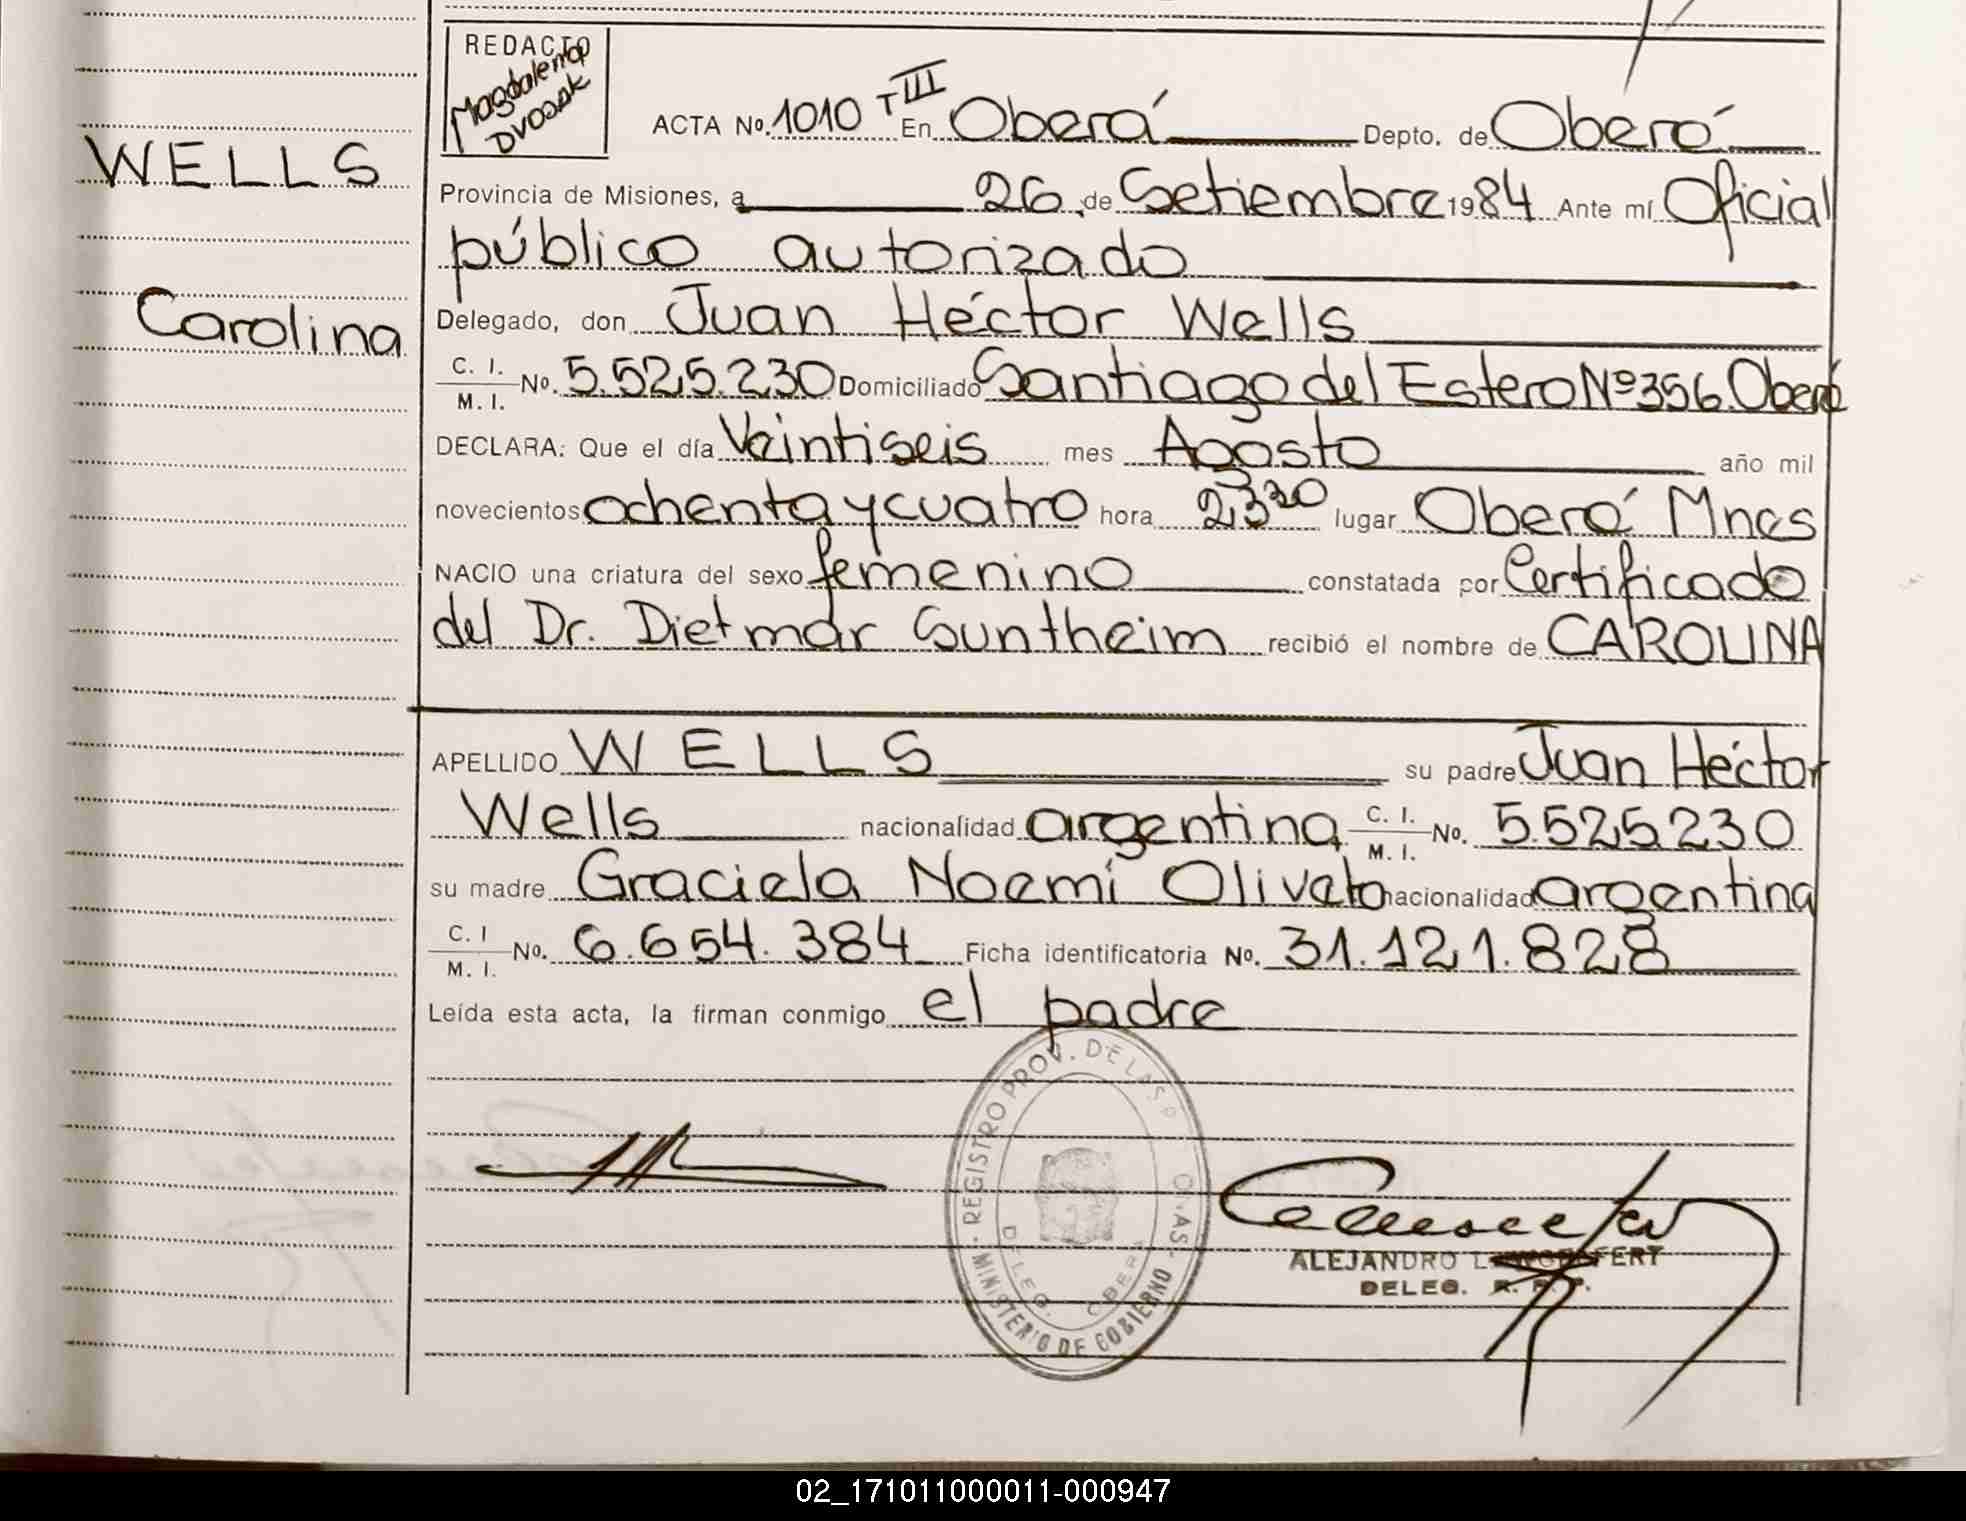 REDACTO
Magdalena
Dvorak
ACTA No. 1010 T III En Oberá Depto. de Oberá
WELLS
Provincia de Misiones, a 26 de Setiembre 1984 Ante mí Oficial
público autorizado
Carolina
Delegado, don Juan Héctor Wells
C. I. M. I. No. 5.525.230 Domiciliado Santiago del Estero Nº 356 Oberá
DECLARA: Que el día Veintiseis mes Agosto año mil
novecientos ochenta y cuatro hora 23 30 lugar Oberá Mnes
NACIO una criatura del sexo femenino constatada por Certificado
del Dr. Dietmar Suntheim recibió el nombre de CAROLINA
APELLIDO WELLS su padre Juan Héctor
Wells nacionalidad argentina C. I. M. I. No. 5.525.230
su madre Graciela Noemí Oliveto nacionalidad argentina
C. I M. I. No. 6.654.384 Ficha identificatoria No. 31.121.828
Leída esta acta, la firman conmigo el padre
REGISTRO PROV. DE LAS P
MINISTERIO DE GOBIERNO
DELEG. OBERA
ALEJANDRO L.
DELEG.
02_171011000011-000947